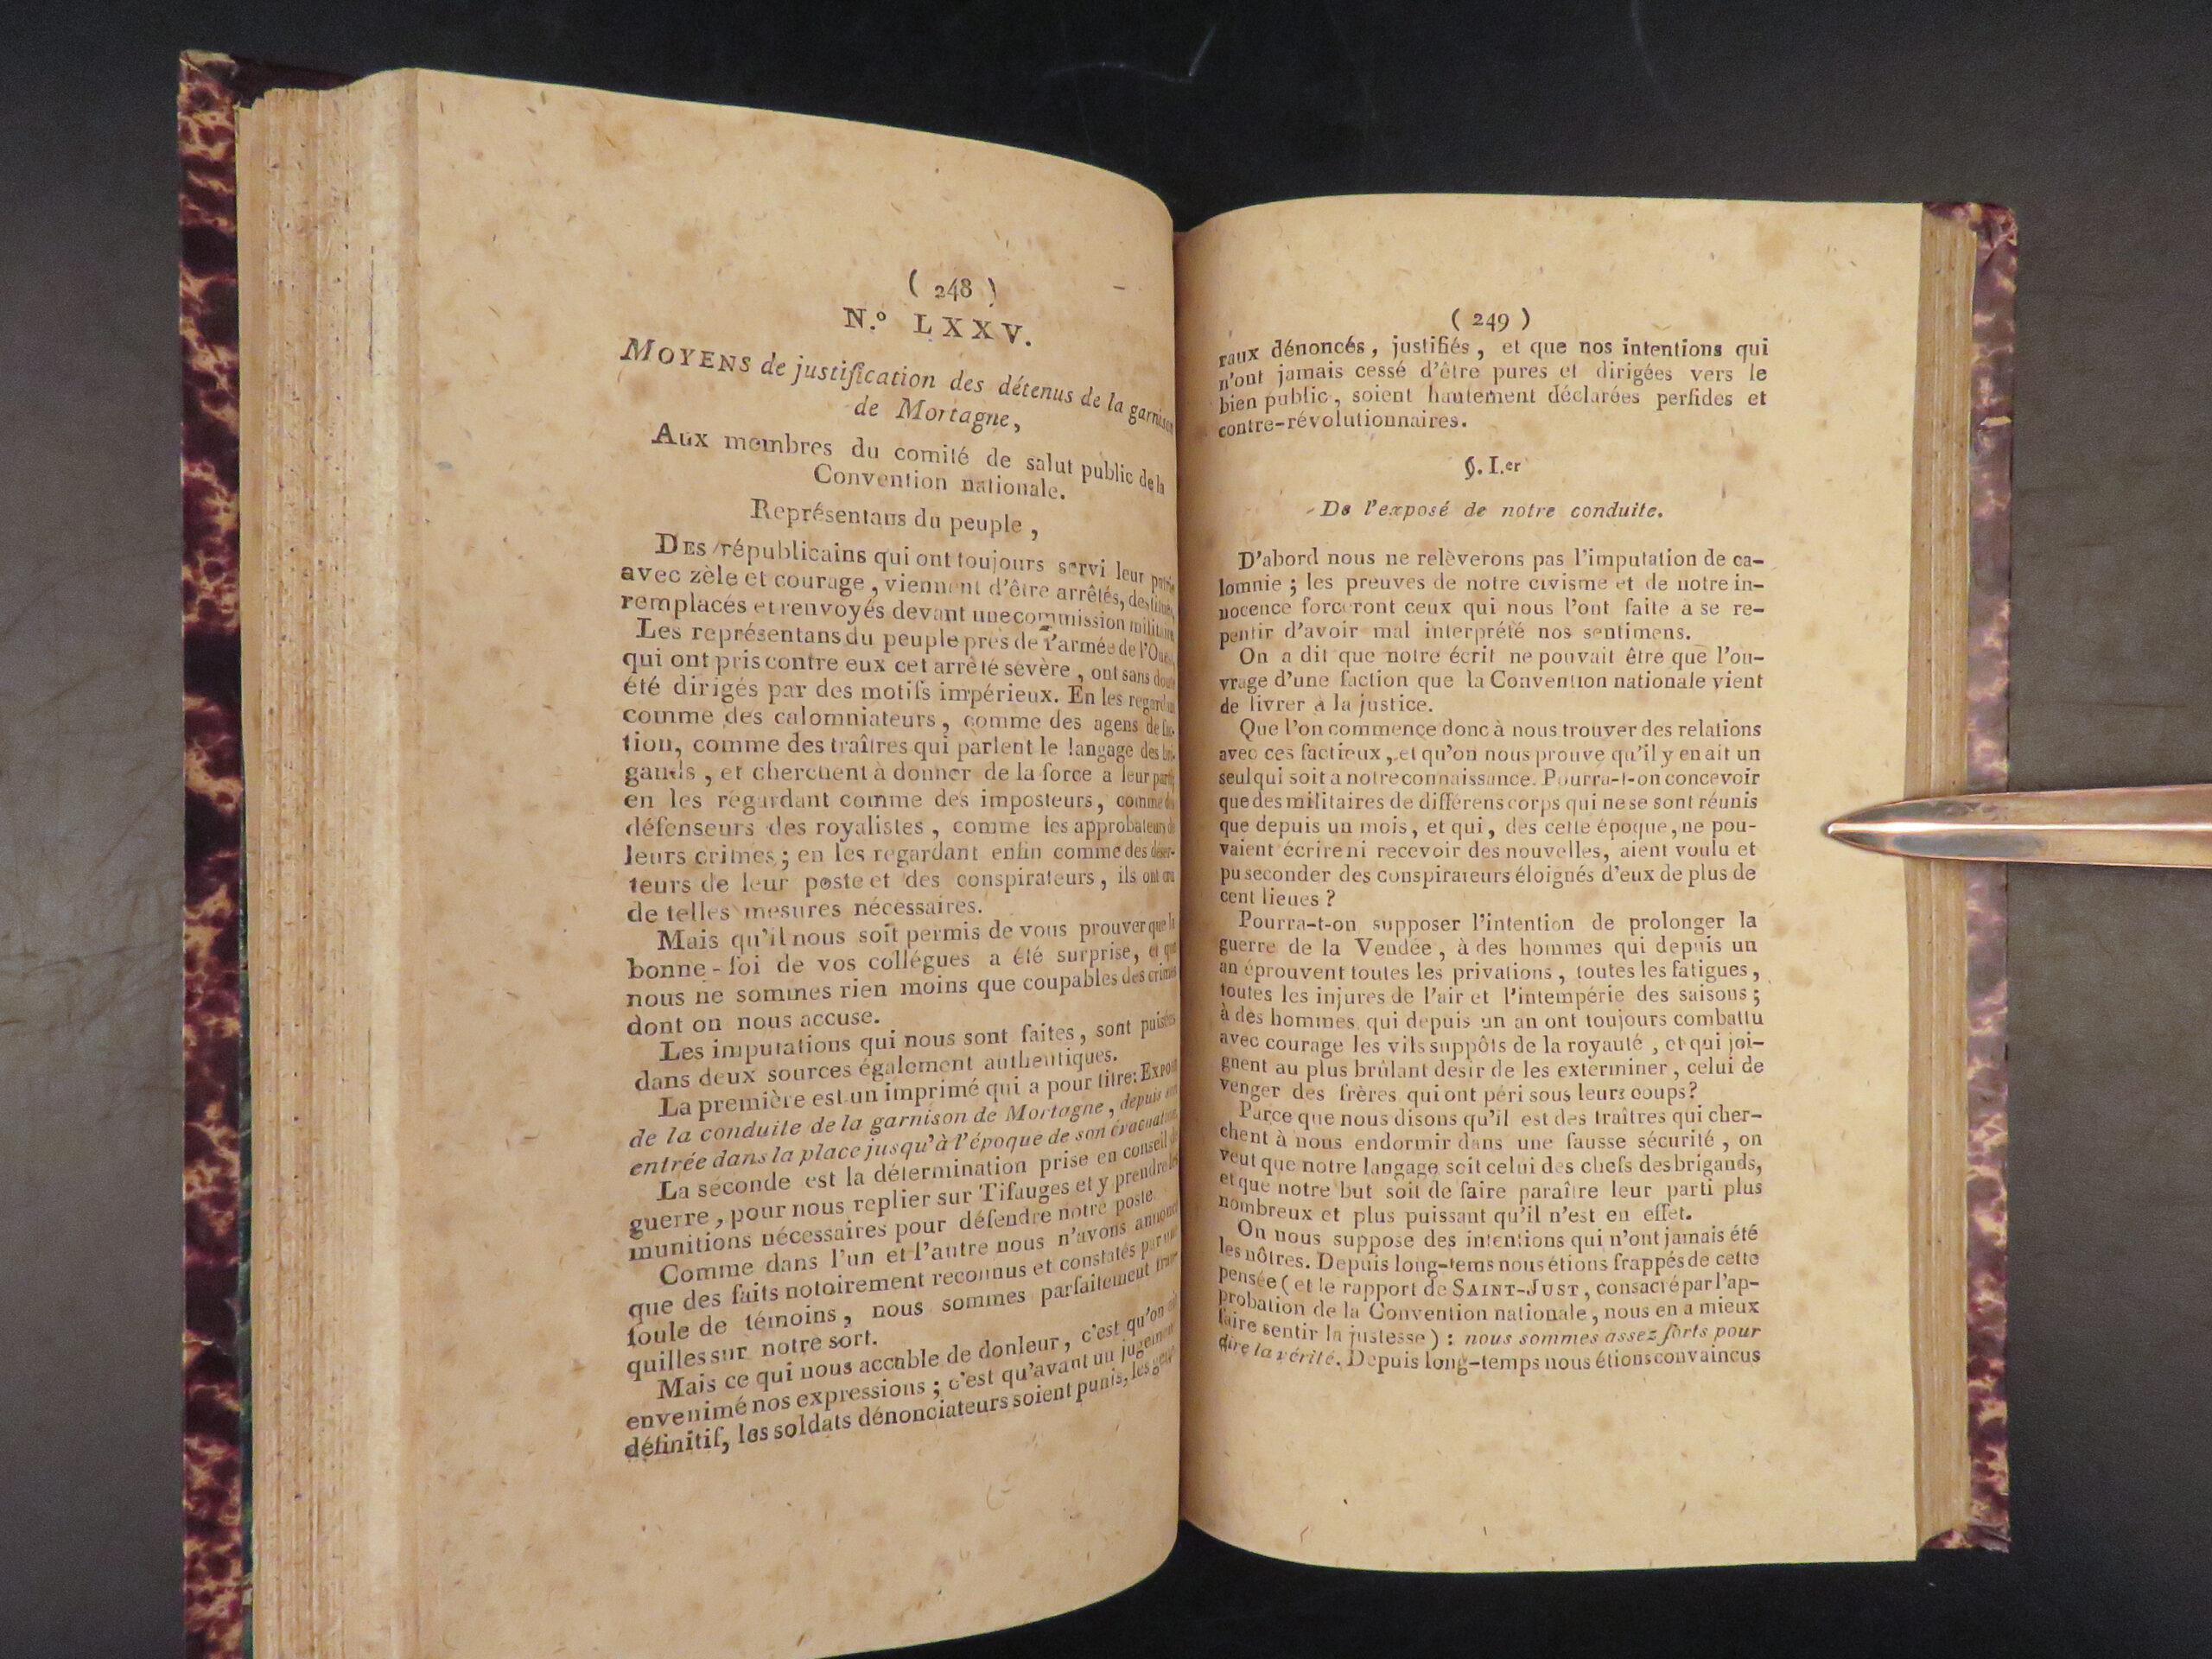 ( 248 )
N.º LXXV.
MOYENS de justification des détenus de la garnison
de Mortagne,
Aux membres du comité de salut public de la
Convention nationale.
Représentans du peuple,
DES républicains qui ont toujours servi leur patrie
avec zèle et courage, viennent d'être arrêtés, destitués,
remplacés et renvoyés devant une commission militaire.
Les représentans du peuple près de l'armée de l'Ouest,
qui ont pris contre eux cet arrêté sévère, ont sans doute
été dirigés par des motifs impérieux. En les regardant
comme des calomniateurs, comme des agens de fac-
tion, comme des traîtres qui parlent le langage des bri-
gands, et cherchent à donner de la force a leur parti;
en les regardant comme des imposteurs, comme des
défenseurs des royalistes, comme les approbateurs de
leurs crimes; en les regardant enfin comme des déser-
teurs de leur poste et des conspirateurs, ils ont cru
de telles mesures nécessaires.
Mais qu'il nous soit permis de vous prouver que la
bonne-foi de vos collégues a été surprise, et que
nous ne sommes rien moins que coupables des crimes
dont on nous accuse.
Les imputations qui nous sont faites, sont puisées
dans deux sources également authentiques.
La première est un imprimé qui a pour titre: Exposé
de la conduite de la garnison de Mortagne, depuis son
entrée dans la place jusqu'à l'époque de son évacuation.
La seconde est la détermination prise en conseil de
guerre, pour nous replier sur Tifauges et y prendre les
munitions nécessaires pour défendre notre poste.
Comme dans l'un et l'autre nous n'avons annoncé
que des faits notoirement reconnus et constatés par une
foule de témoins, nous sommes parfaitement tran-
quilles sur notre sort.
Mais ce qui nous accable de donleur, c'est qu'on ait
envenimé nos expressions; c'est qu'avant un jugement
définitif, les soldats dénonciateurs soient punis, les géné-
( 249 )
raux dénoncés, justifiés, et que nos intentions qui
n'ont jamais cessé d'être pures et dirigées vers le
bien public, soient hautement déclarées perfides et
contre-révolutionnaires.
§. I.er
De l'exposé de notre conduite.
D'abord nous ne relèverons pas l'imputation de ca-
lomnie; les preuves de notre civisme et de notre in-
nocence forceront ceux qui nous l'ont faite a se re-
pentir d'avoir mal interprété nos sentimens.
On a dit que notre écrit ne pouvait être que l'ou-
vrage d'une faction que la Convention nationale vient
de livrer à la justice.
Que l'on commence donc à nous trouver des relations
avec ces factieux, et qu'on nous prouve qu'il y en ait un
seul qui soit a notre connaissance. Pourra-t-on concevoir
que des militaires de différens corps qui ne se sont réunis
que depuis un mois, et qui, dès cette époque, ne pou-
vaient écrire ni recevoir des nouvelles, aient voulu et
pu seconder des conspirateurs éloignés d'eux de plus de
cent lieues ?
Pourra-t-on supposer l'intention de prolonger la
guerre de la Vendée, à des hommes qui depuis un
an éprouvent toutes les privations, toutes les fatigues,
toutes les injures de l'air et l'intempérie des saisons;
à des hommes qui depuis un an ont toujours combattu
avec courage les vils suppôts de la royauté, et qui joi-
gnent au plus brûlant désir de les exterminer, celui de
venger des frères qui ont péri sous leurs coups?
Parce que nous disons qu'il est des traîtres qui cher-
chent à nous endormir dans une fausse sécurité, on
veut que notre langage soit celui des chefs des brigands,
et que notre but soit de faire paraître leur parti plus
nombreux et plus puissant qu'il n'est en effet.
On nous suppose des intentions qui n'ont jamais été
les nôtres. Depuis long-tems nous étions frappés de cette
pensée ( et le rapport de SAINT-JUST, consacré par l'ap-
probation de la Convention nationale, nous en a mieux
faire sentir la justesse ) : nous sommes assez forts pour
dire la vérité. Depuis long-temps nous étions convaincus